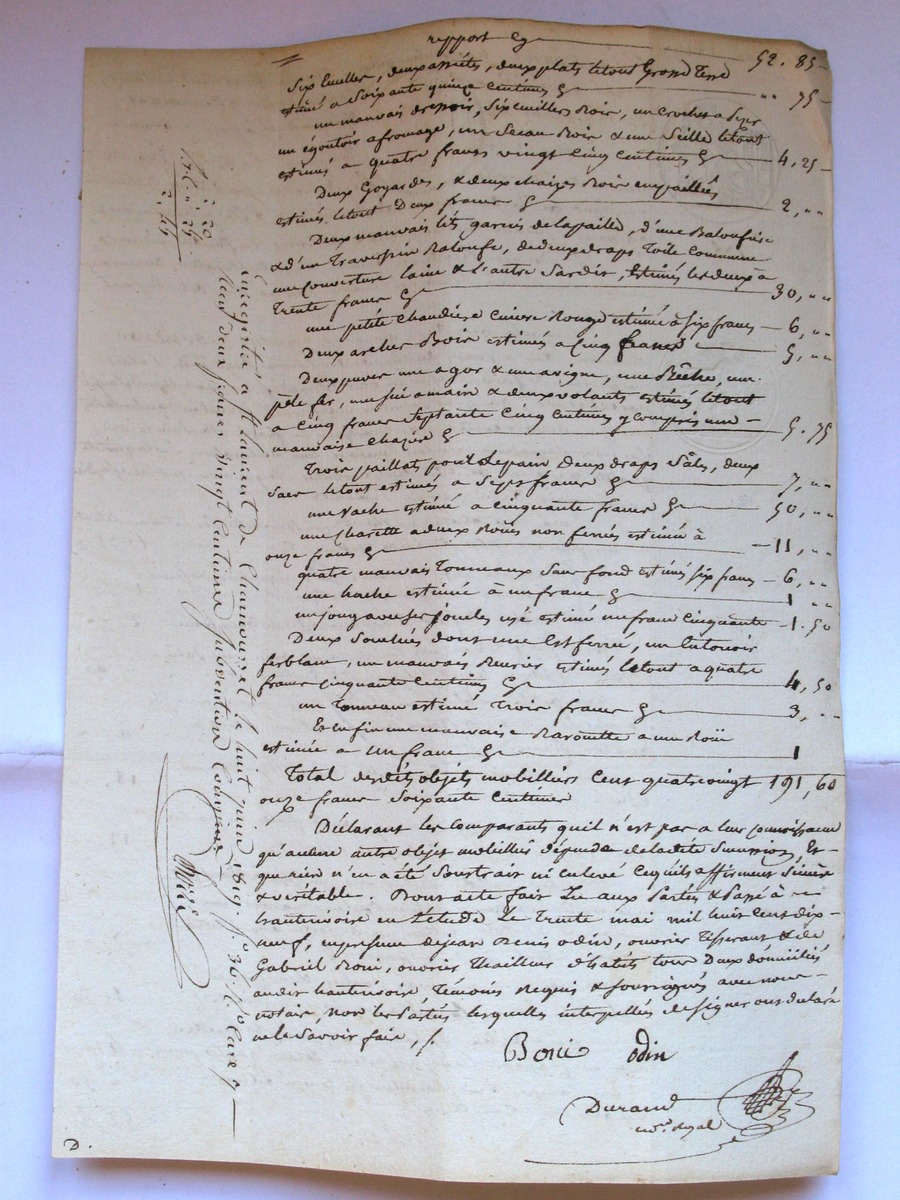 report Cy 52. 85
Six Cuelles, deux assiétes, deux plats letout Grosse Terre
estimé a Soixante quinze Centimes " 75
un mauvais dressoir, Six Cuillers Bois, un Crochet a
un égoutoir a fromage, un Seau Bois & une Seille letout
estimés a quatre francs vingt Cinq Centimes 4, 25
Deux Goyardes, & deux chaizes Bois empaillées
estimés letout Deux francs 2, ""
Deux mauvais lits garnis de lapaille, d'une
& d'un Traversin Baloufe, de deux draps Toile Commune
une Couverture laine & l'autre Sardis, Estimés les deux a
Trente francs 30, ""
une petite Chaudiere Cuivre Rouge estimée a six francs 6, ""
Deux arches Bois estimés a Cinq francs 5, ""
Deux une a & une a vigne, une Bêche, une
pèle fer, une a main & deux volants estimés letout
a Cinq francs Septante Cinq Centimes y Compris une
mauvaise 5. 75
Trois paillats pour Lepain Deux draps Sâles, deux
Sacs letout estimés a Sept francs 7, ""
une vache estimée a Cinquante francs 50, ""
une Charette a deux Roües non ferrées estimée à
onze francs 11, ""
quatre mauvais Tonneaux Sans fond estimés six francs 6, ""
une hache estimée a un franc 1 ""
un joug avec Ses usé estimé un franc Cinquante 1. 50
Deux dont une Est ferrée, un Entonoir
ferblanc, un mauvais estimés letout a quatre
francs Cinquante Centimes 4, 50
un Tonneau estimé Trois francs 3, ""
Et Enfin une mauvaise Barouette a une Roüe
estimée a un franc 1
Total desdits objets mobilliers Cent quatrevingt 191, 60
onze francs Soixante Centimes
Déclarant les Comparants quil n'est pas a leur Connoissance
qu'aucune autre objet mobillié dépende deladite Succession, Et
que rien n'en a été Soustrait ni Enlevé Cequils affirment Sincère
& véritable. Dont acte fait Lu aux Parties & Passé à
hauterivoire en L'étude Le Trente mai mil huit Cent dix
neuf, en présence de jean Benis odin, ouvrier Tisserant & de
Gabriel Boni, ouvrier Thailleur d'habits tous Deux domiciliés
audit hauterivoire, Témoins Requis & Soussignés avec nous
notaire, non les Parties lesquelles interpellées de Signer ont déclaré
ne le Savoir faire,
Boni odin
Durand
not. Royal
Enregistré a St Laurent de Chamousset le huit juin 1819. f° 36. R° Case 7
Reçu deux francs vingt Centimes Subvention Comprise
2. 20
" 24
2. 44
D.